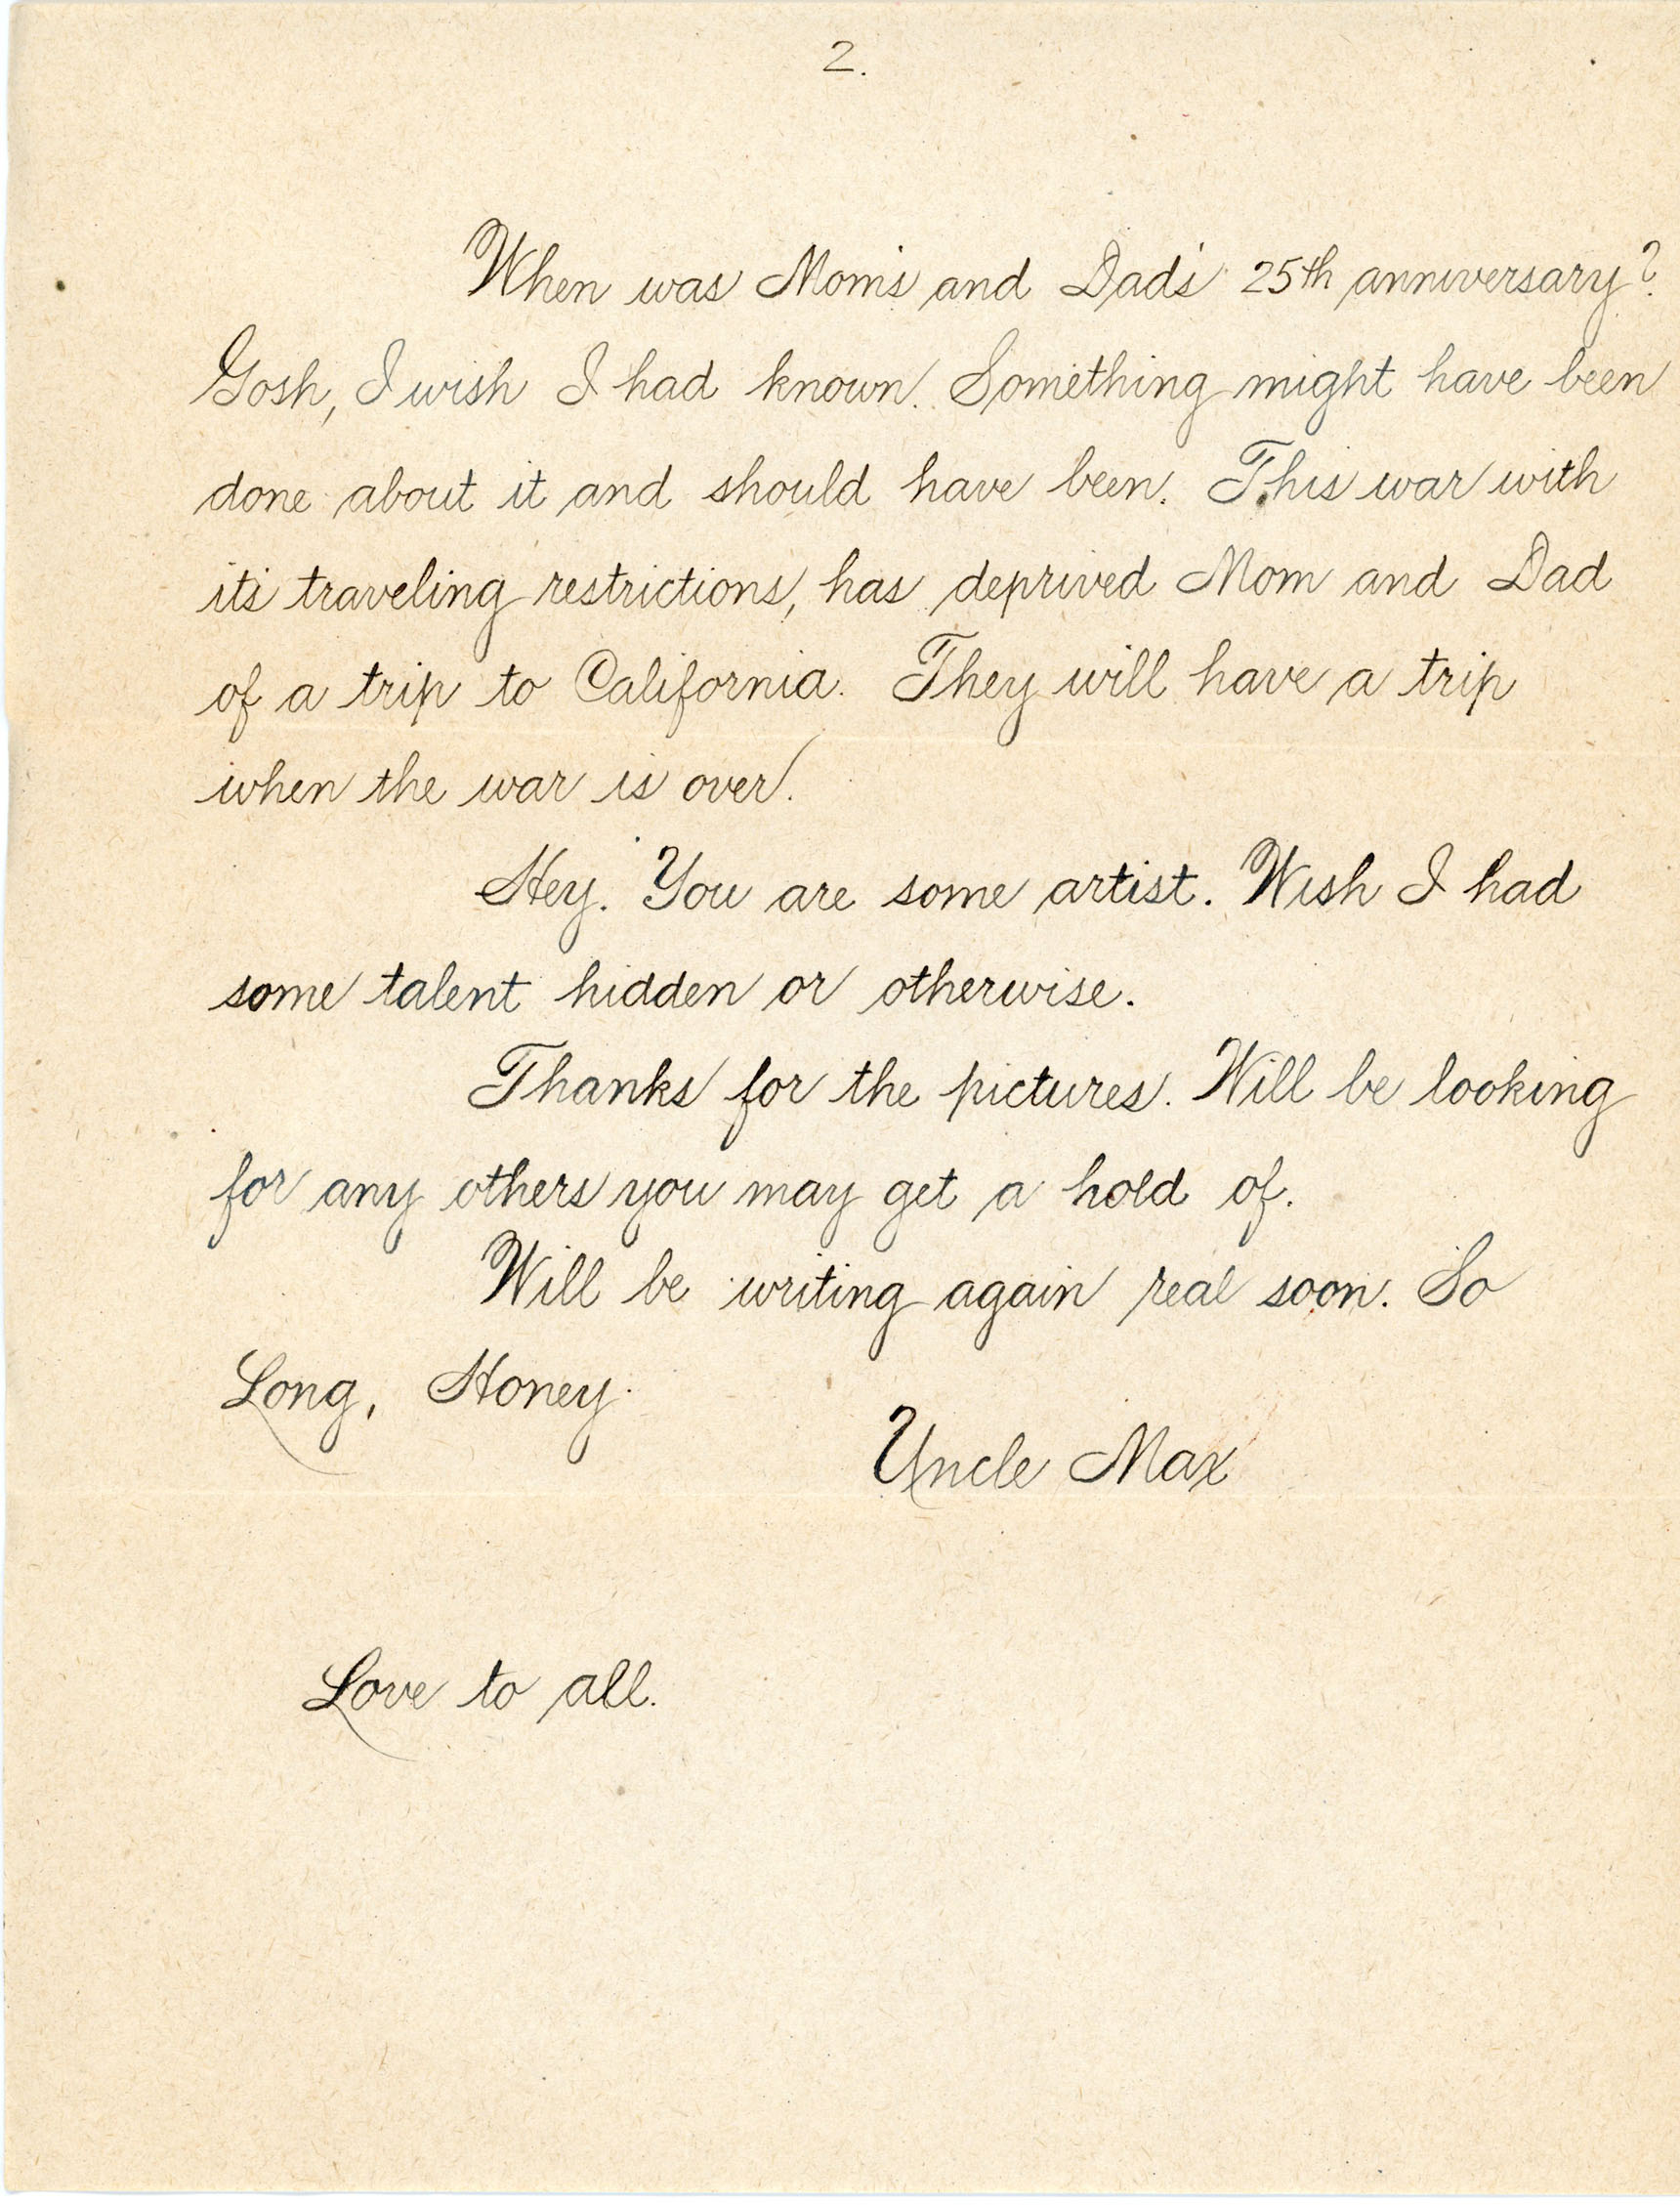 2.
When was Mom's and Dad's 25th anniversary?
Gosh, I wish I had known. Something might have been
done about it and should have been. This war with
it's traveling restrictions, has deprived Mom and Dad
of a trip to California. They will have a trip
when the war is over.
Hey. You are some artist. Wish I had
some talent hidden or otherwise.
Thanks for the pictures. Will be looking
for any others you may get a hold of.
Will be writing again real soon. So
Long, Honey.
Uncle Max
Love to all.